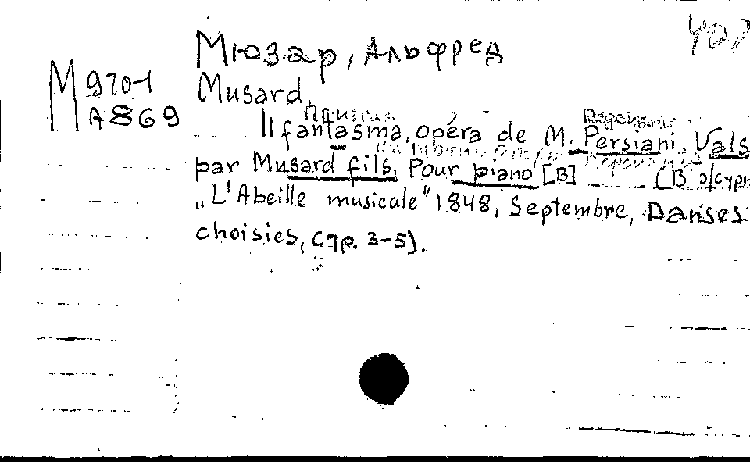 Мюзар, Альфред
М 970-1
А 869
Musard
Il fantasma, opéra de M. Persiani. Vals
par Musard fils. Pour piano [В] (В журн
„L'Abeille musicale" 1848, Septembre, Danses
choisies, стр. 3-5).